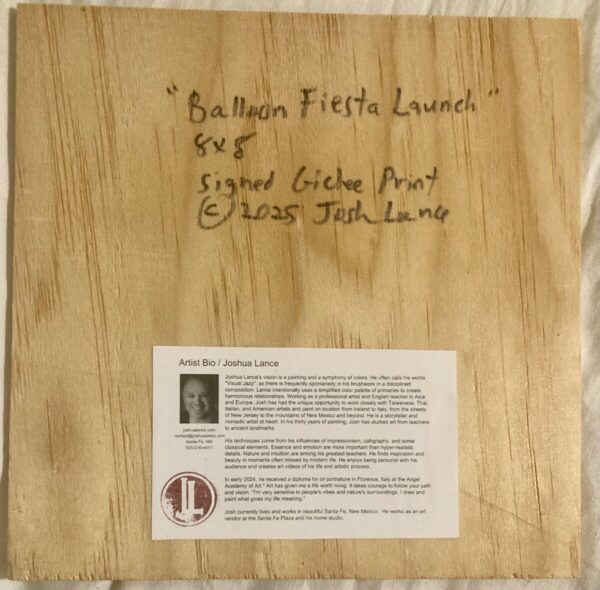 "Balloon Fiesta Launch"
8x8
signed Giclee Print
© 2025 Josh Lance
Artist Bio / Joshua Lance
Joshua Lance's vision is a painting and a symphony of colors. He often calls his works
"Visual Jazz", as there is frequently spontaneity in his brushwork in a disciplined
composition. Lance intentionally uses a simplified color palette of primaries to create
harmonious relationships. Working as a professional artist and English teacher in Asia
and Europe, Josh has had the unique opportunity to work closely with Taiwanese, Thai,
Italian, and American artists and paint on location from Ireland to Italy, from the streets
of New Jersey to the mountains of New Mexico and beyond. He is a storyteller and
nomadic artist at heart. In his thirty years of painting, Josh has studied art from teachers
to ancient landmarks.
joshualance.com
contact@joshualance.com
Santa Fe, NM
505-216-4411
His techniques come from his influences of impressionism, calligraphy, and some
classical elements. Essence and emotion are more important than hyper-realistic
details. Nature and intuition are among his greatest teachers. He finds inspiration and
beauty in moments often missed by modern life. He enjoys being personal with his
audience and creates art videos of his life and artistic process.
In early 2024, he received a diploma for oil portraiture in Florence, Italy at the Angel
Academy of Art." Art has given me a life worth living. It takes courage to follow your path
and vision. "I'm very sensitive to people's vibes and nature's surroundings. I draw and
paint what gives my life meaning."
JL
Josh currently lives and works in beautiful Santa Fe, New Mexico. He works as an art
vendor at the Santa Fe Plaza and his home studio.